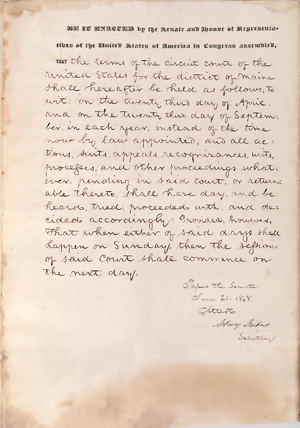 BE IT ENACTED by the Senate and House of Representa-
tives of the United States of America in Congress assembled,
THAT the terms of the circuit court of the
United States for the district of Maine
shall hereafter be held as follows, to
wit: on the twenty third day of April,
and on the twenty third day of Septem-
ber, in each year, instead of the time
now by law appointed, and all ac-
tions, suits, appeals, recognizances, writs,
processes, and other proceedings what-
ever, pending in said court, or return-
able thereto, shall have day, and be
heard, tried, proceeded with, and de-
cided accordingly: Provided, however,
That when either of said days shall
happen on Sunday, then the session
of said Court shall commence on
the next day.
Passed the Senate
June 21. 1848
Attest
Secretary